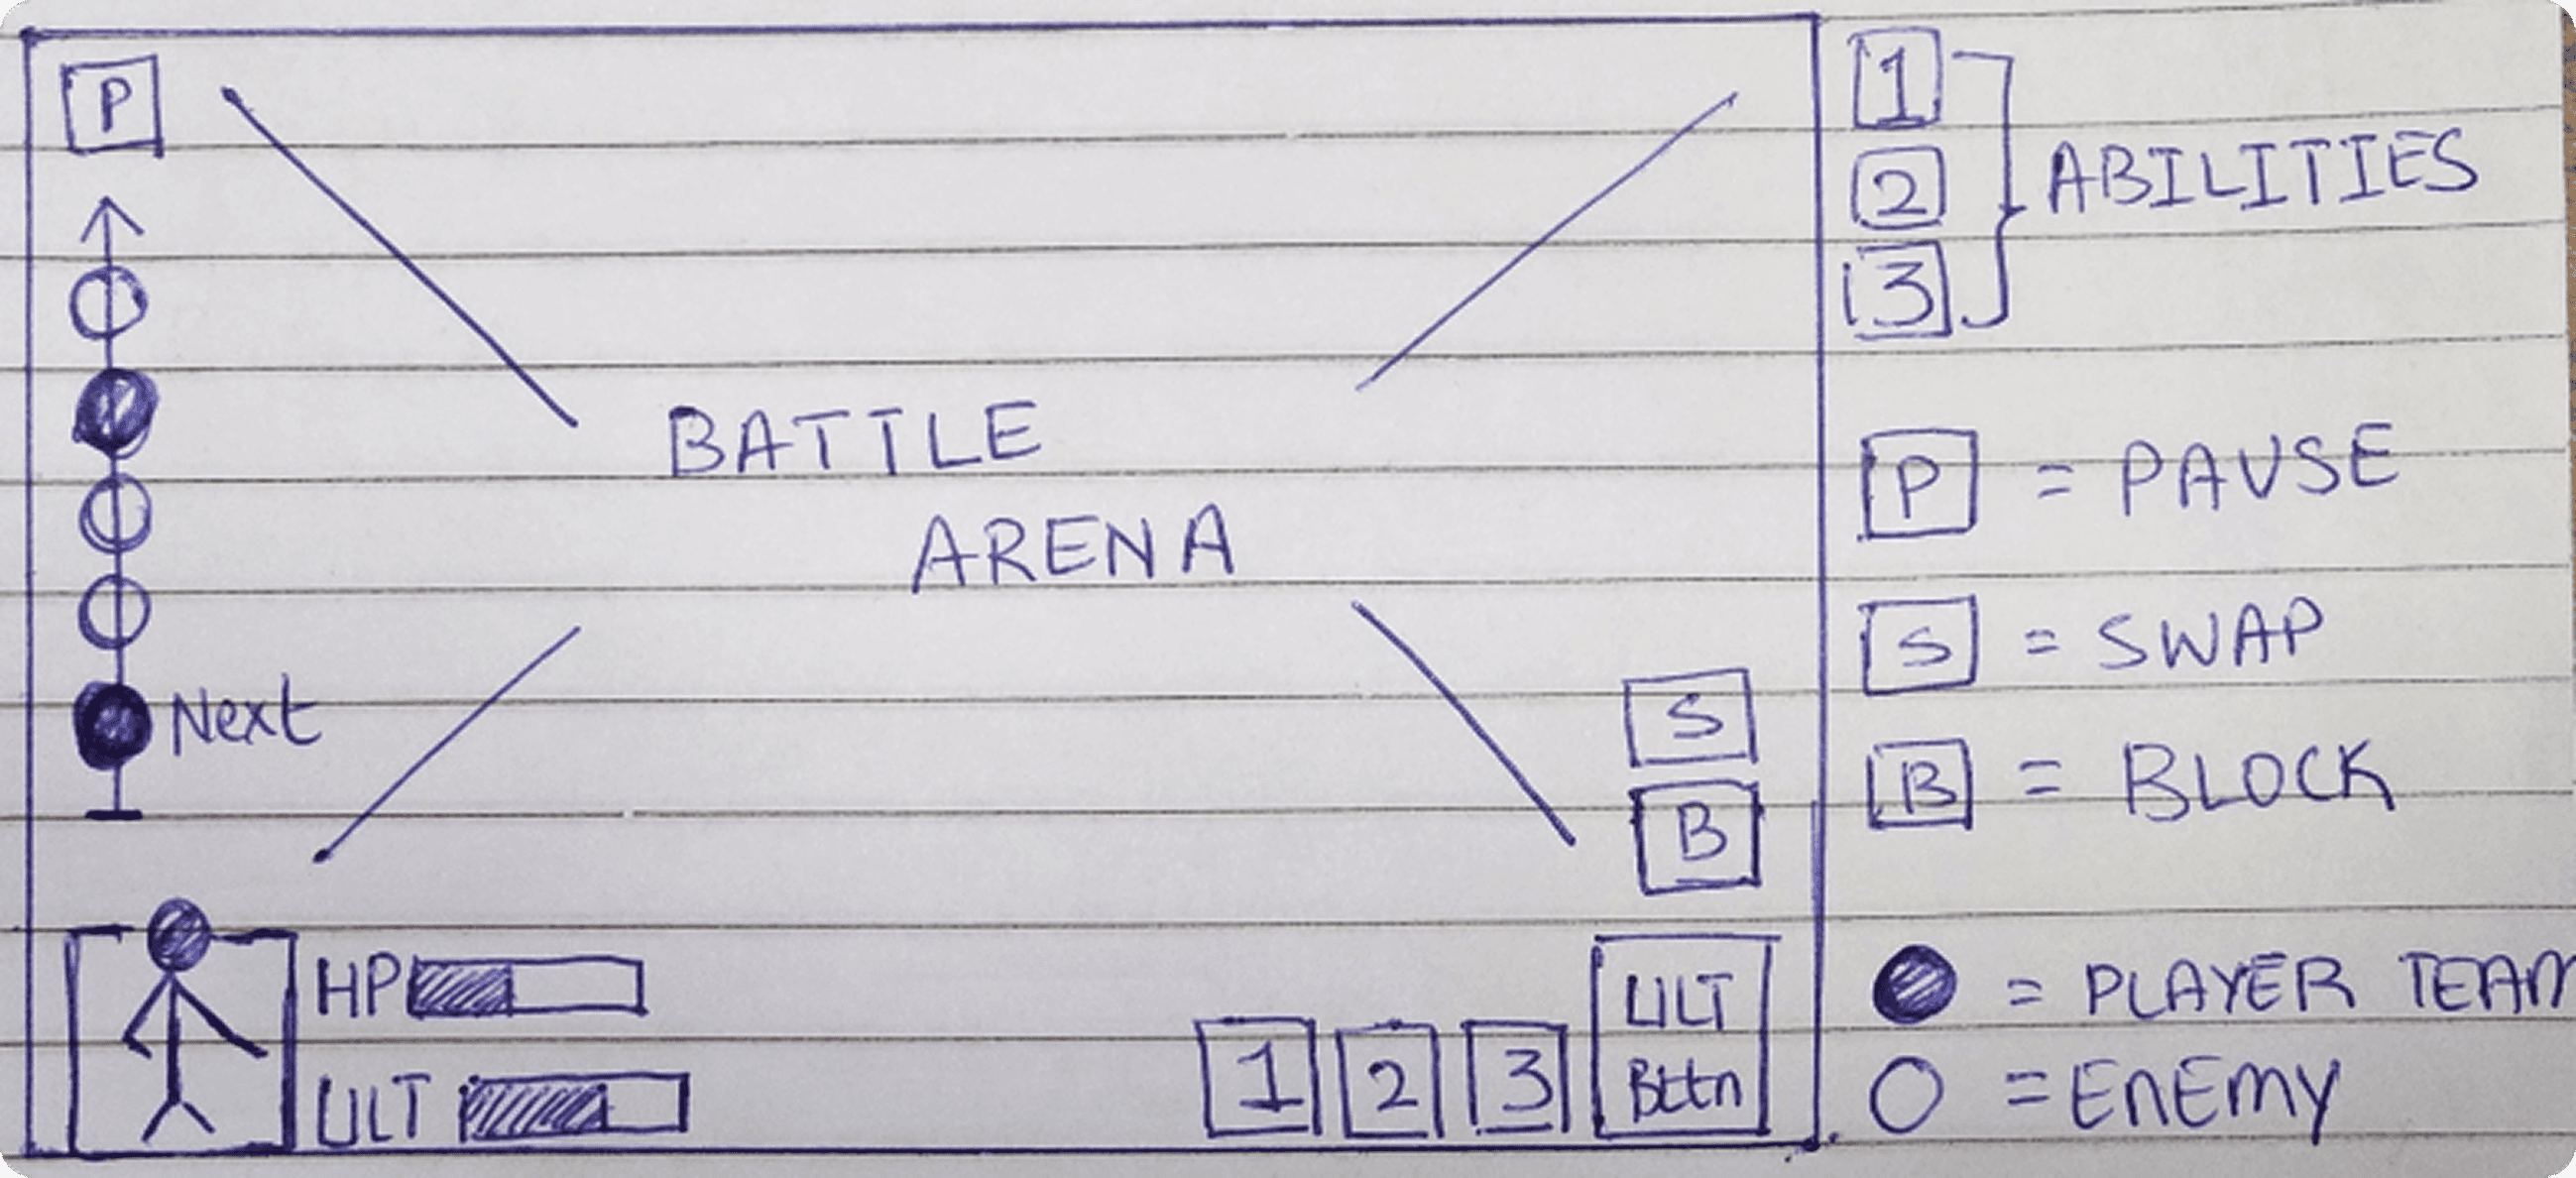 P
BATTLE
ARENA
Next
S
B
HP
ULT
1 2 3
ULT
Bttn
1
2
3
ABILITIES
P = PAUSE
S = SWAP
B = BLOCK
= PLAYER TEAM
= ENEMY